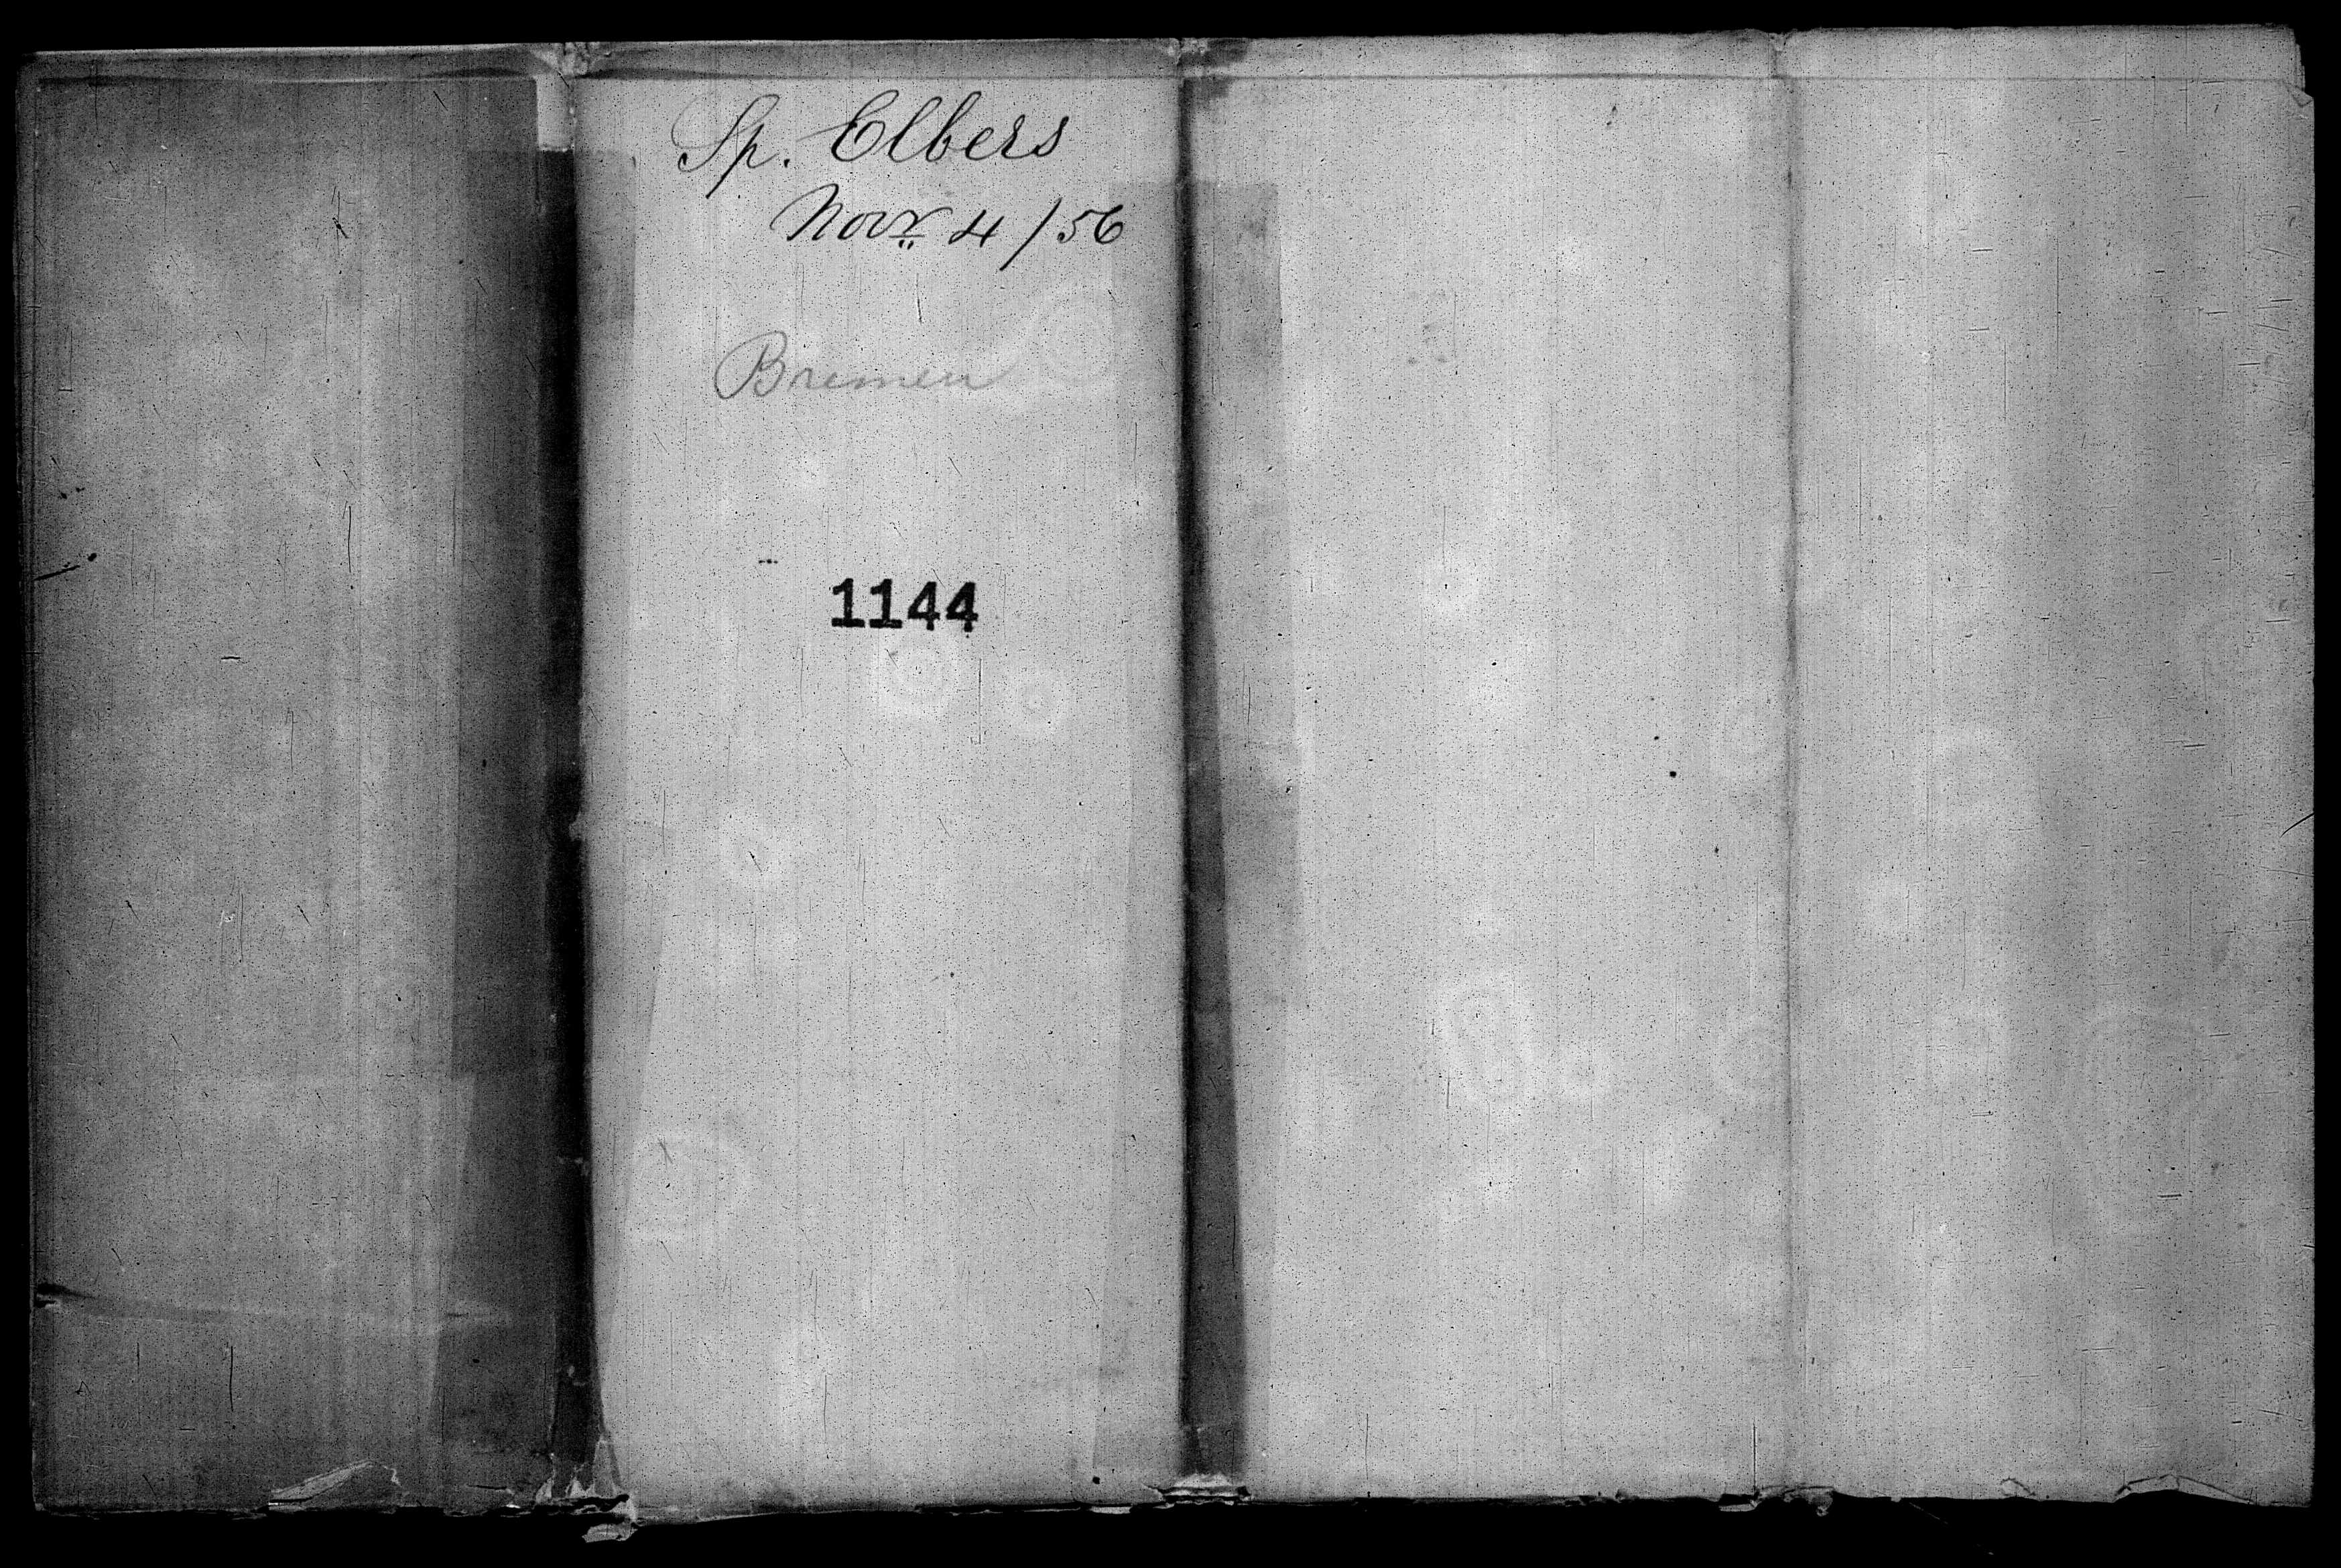 Sp. Elbers
Novr 4/56
Bremen
1144